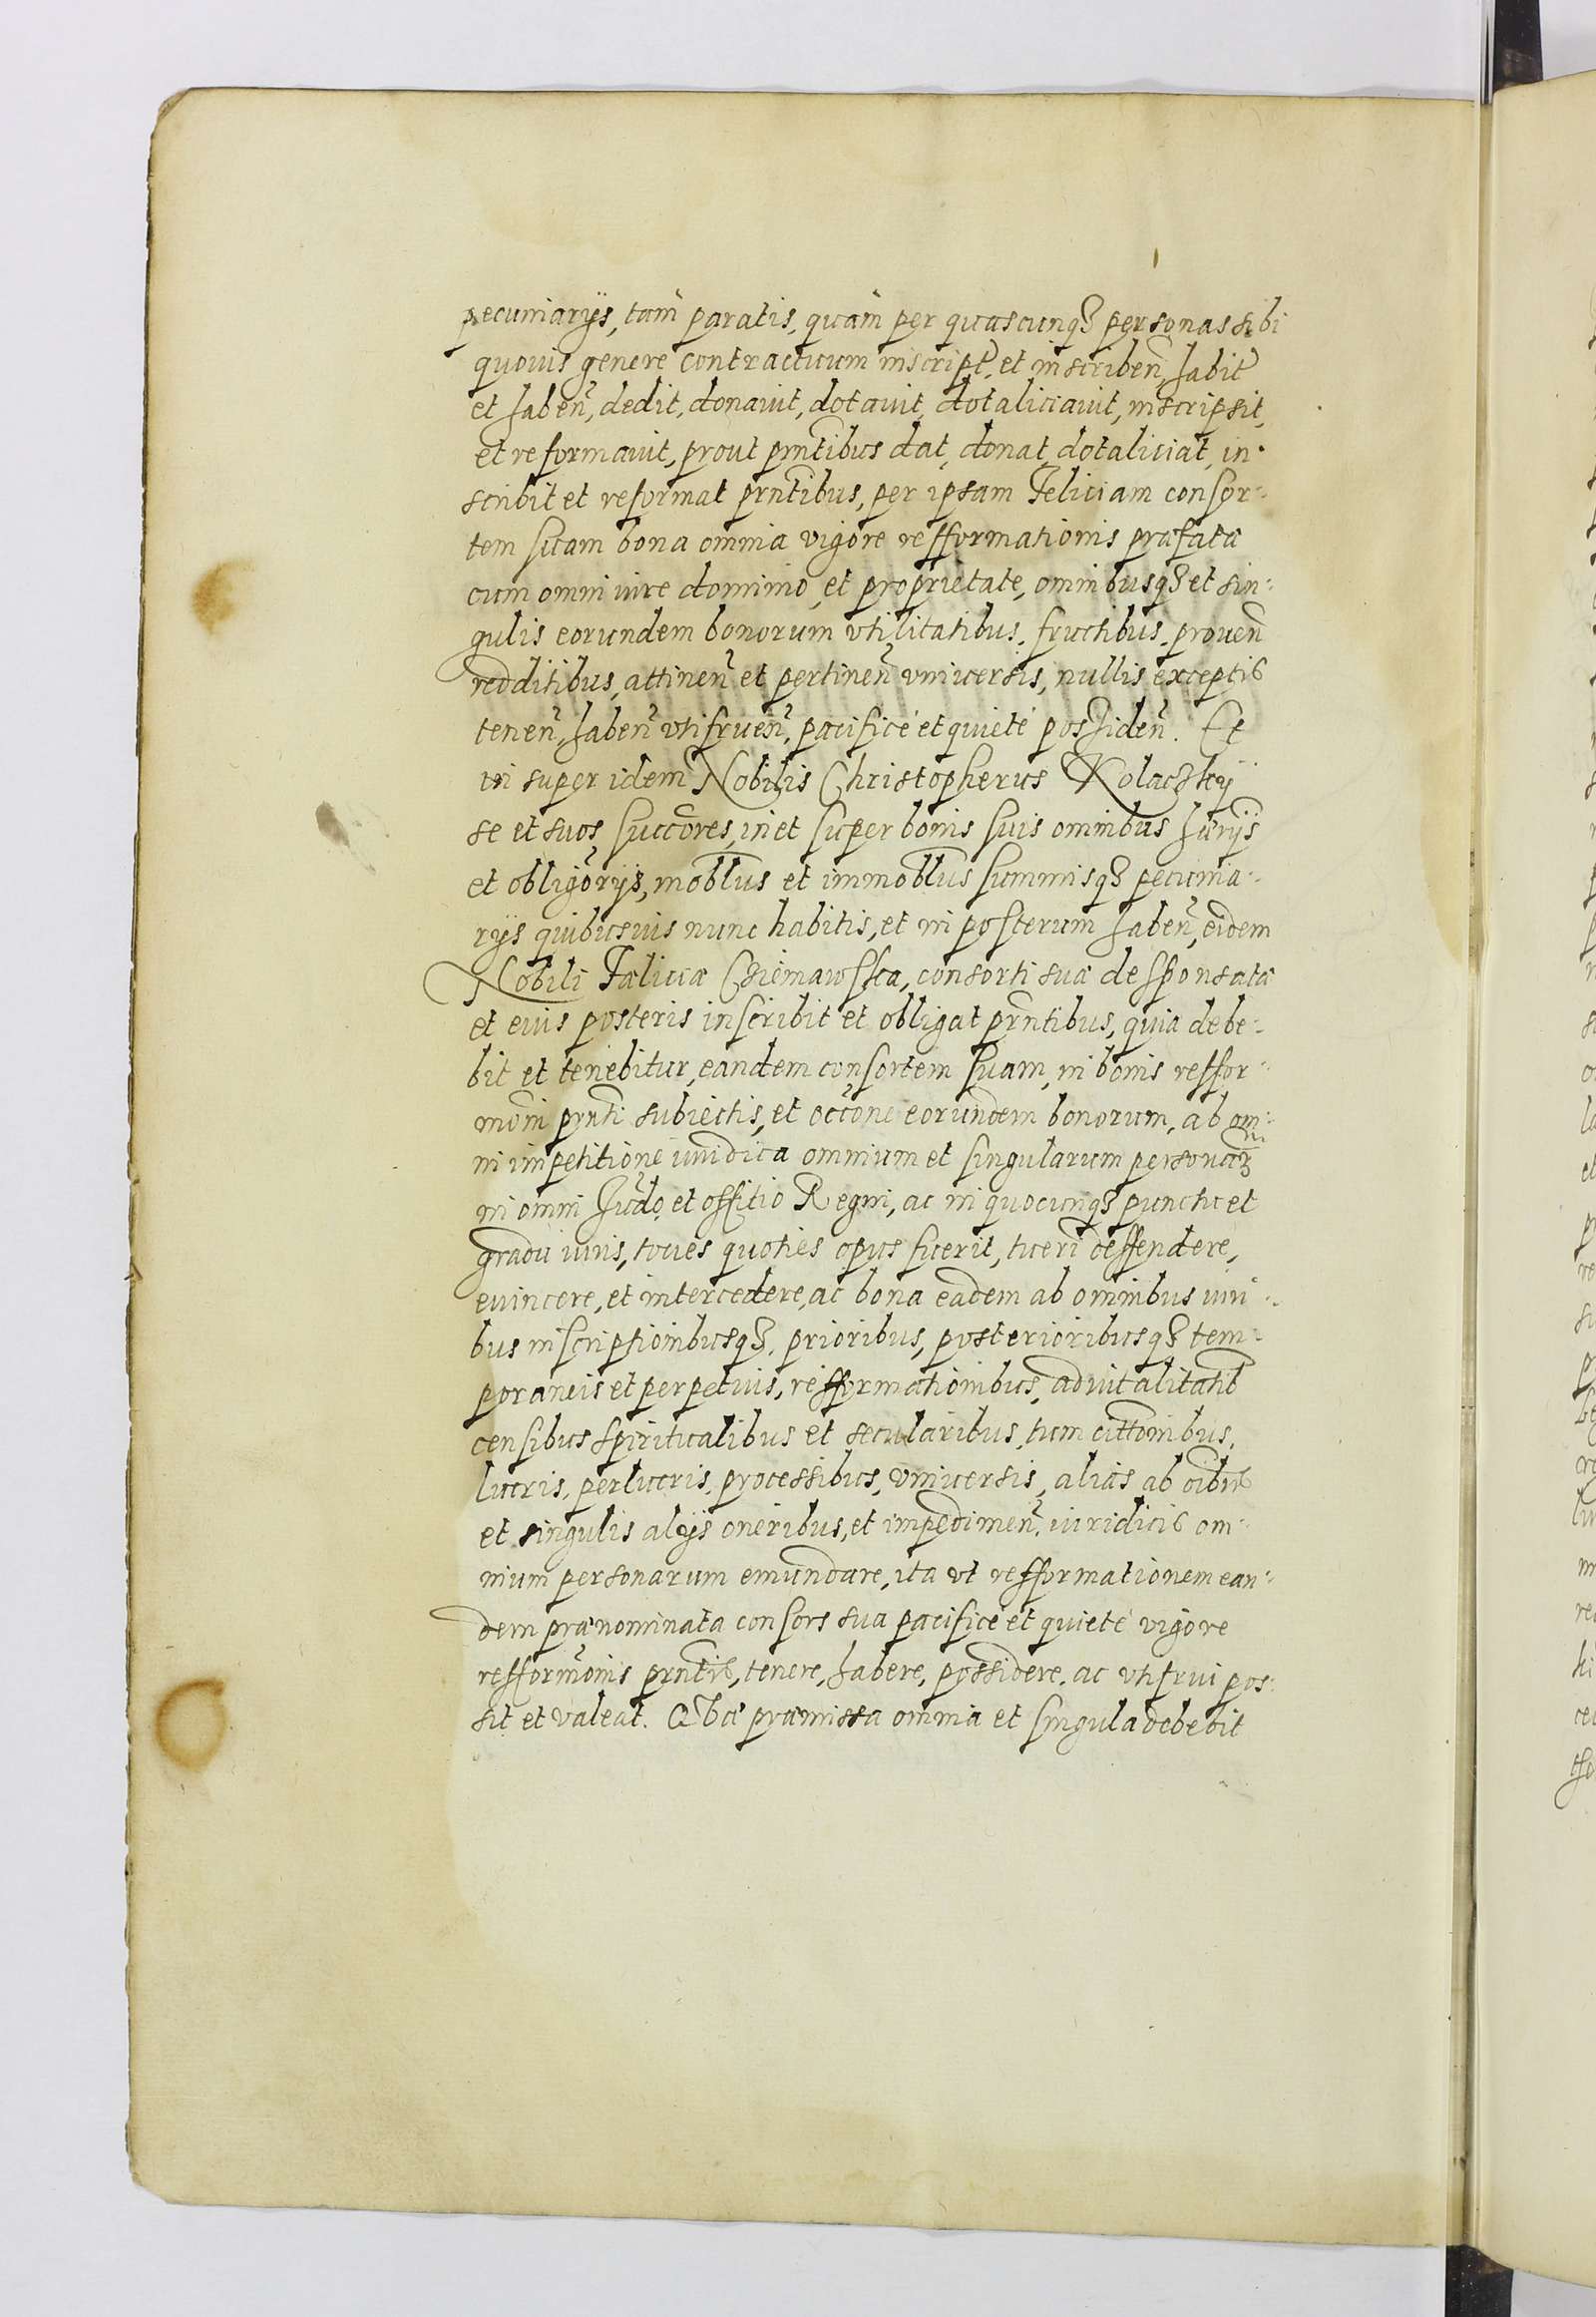 pecuniarÿs, tam̀ paratis, quam̀ per quascunqȝ personas sibi
quouis genere contractuum inscript̃, et inscribeñ, habit̃
et habeñ, dedit, donauit, dotauit, dotaliciauit, inscripsit,
et reformauit, prout pr̃ntibus dat, donat, dotaliciat, in:
scribit et reformat pr̃ntibus, per ipsam Feliciam consor:
tem suam bona omnia vigore refformationis præfata
cum omni iure dominio, et proprietate, omnibusqȝ et sin:
gulis eorundem bonorum vtilitatibus, fructibus, proueñ
redditibus, attineñ et pertineñ vniuersis, nullis exceptis
teneñ, habeñ vtifrueñ, pacificè et quietè possideñ. Et
in super idem Nobilis Christopherus Kolaczkÿ
se et suos succ̃ores, in et super bonis suis omnibus hærÿs
et oblig̃orÿs, mob̃lbus et immob̃lbus summisqȝ pecunia:
rÿs quibusuis nunc habitis, et in posterum habeñ, eidem
Nobili Fæliciæ Cziemawska, consorti suæ desponsatæ
et eius posteris inscribit et obligat pr̃ntibus, quia debe:
bit et tenebitur, eandem consortem suam, in bonis reffor:
m̃oni pr̃nti subiectis, et occ̃one eorundem bonorum, ab om:
ni impetitione iuridica omnium et singularum personarȝ
in omni Jud̃o, et offitio Regni, ac in quocunqȝ puncto et
gradu iuris, toties quoties opus fuerit, tueri deffendere,
euincere, et intercedere, ac bona eadem ab omnibus iuri:
bus inscriptionibusqȝ, prioribus, posterioribusqȝ tem:
poraneis et perpetuis, refformationibus, aduitalitatib
censibus spiritualibus et secularibus, tum citt̃onibus,
lucris, perlucris, processibus, vniuersis, aliàs ab oĩbus
et singulis alÿs oneribus, et impedimeñ, iuridicis om:
nium personarum emundare, ita vt refformationem ean:
dem prænominata consors sua pacificè et quietè vigore
refform̃onis pr̃ntis, tenere, habere, possidere, ac vtifrui pos:
sit et valeat. Quæ præmissa omnia et singula debebit